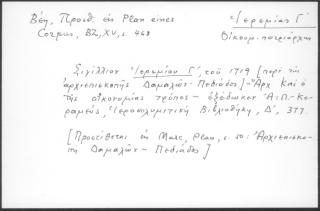 Βέη, Προσθ. εἰς Plan eines
Corpus, BZ, XV, σ. 468
Ἱερεμίας Γ΄
Οἰκουμ. πατριάρχης
Σιγίλλιον Ἱερεμίου Γ΄, τοῦ 1719 [περὶ τῆς
ἀρχιεπισκοπῆς Δαμαλῶν - Πεδιάδος] - Ἀρχ. Καὶ ὁ
τῆς οἰκονομίας τρόπος - ἐξέδωκεν Ἀ. Π. - Κε-
ραμεύς, Ἱεροσολυμιτικὴ Βιβλιοθήκη, Δ΄, 377.
[Προστίθεται εἰς Marc, Plan, σ. 50: Ἀρχιεπισκο-
πὴ Δαμαλῶν - Πεδιάδος]